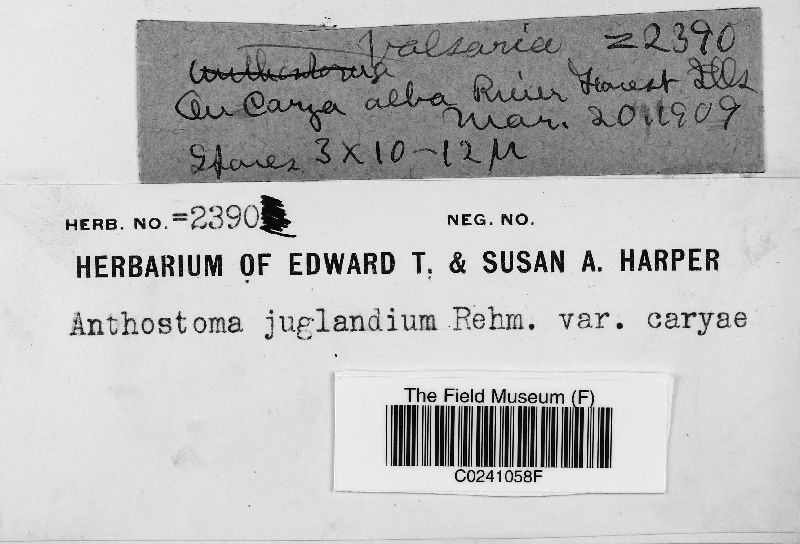 Valsaria =2390
Anthostoma
On Carya alba River Forest Ills
Mar. 20, 1909
Spores 3 X 10-12 µ
HERB. NO. =2390 NEG. NO.
HERBARIUM OF EDWARD T. & SUSAN A. HARPER
Anthostoma juglandium Rehm. var. caryae
The Field Museum (F)
C0241058F